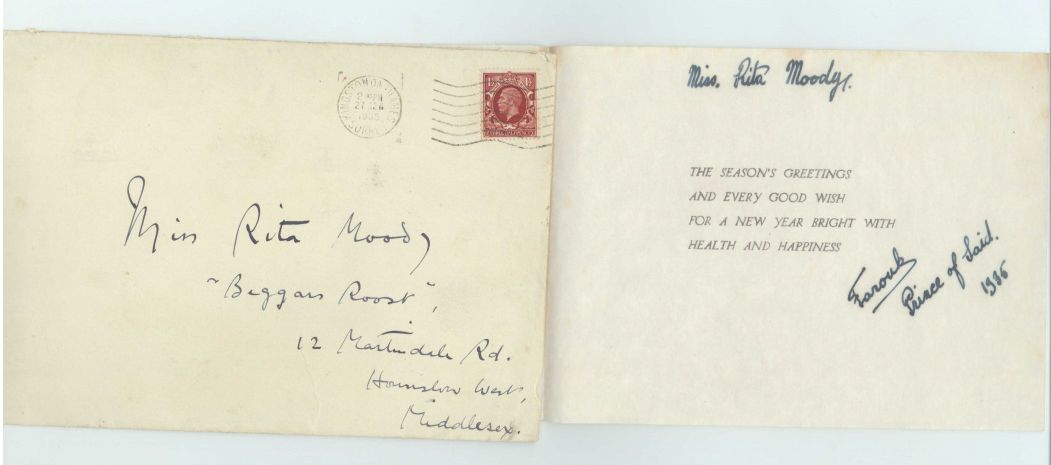 KINGSTON ON THAMES
SURREY
Miss Rita Moody
"Beggars Roost",
12 Martindale Rd.
Hounslow West,
Middlesex.
Miss. Rita Moody.
THE SEASON'S GREETINGS
AND EVERY GOOD WISH
FOR A NEW YEAR BRIGHT WITH
HEALTH AND HAPPINESS
Farouk
Prince of Said.
1936